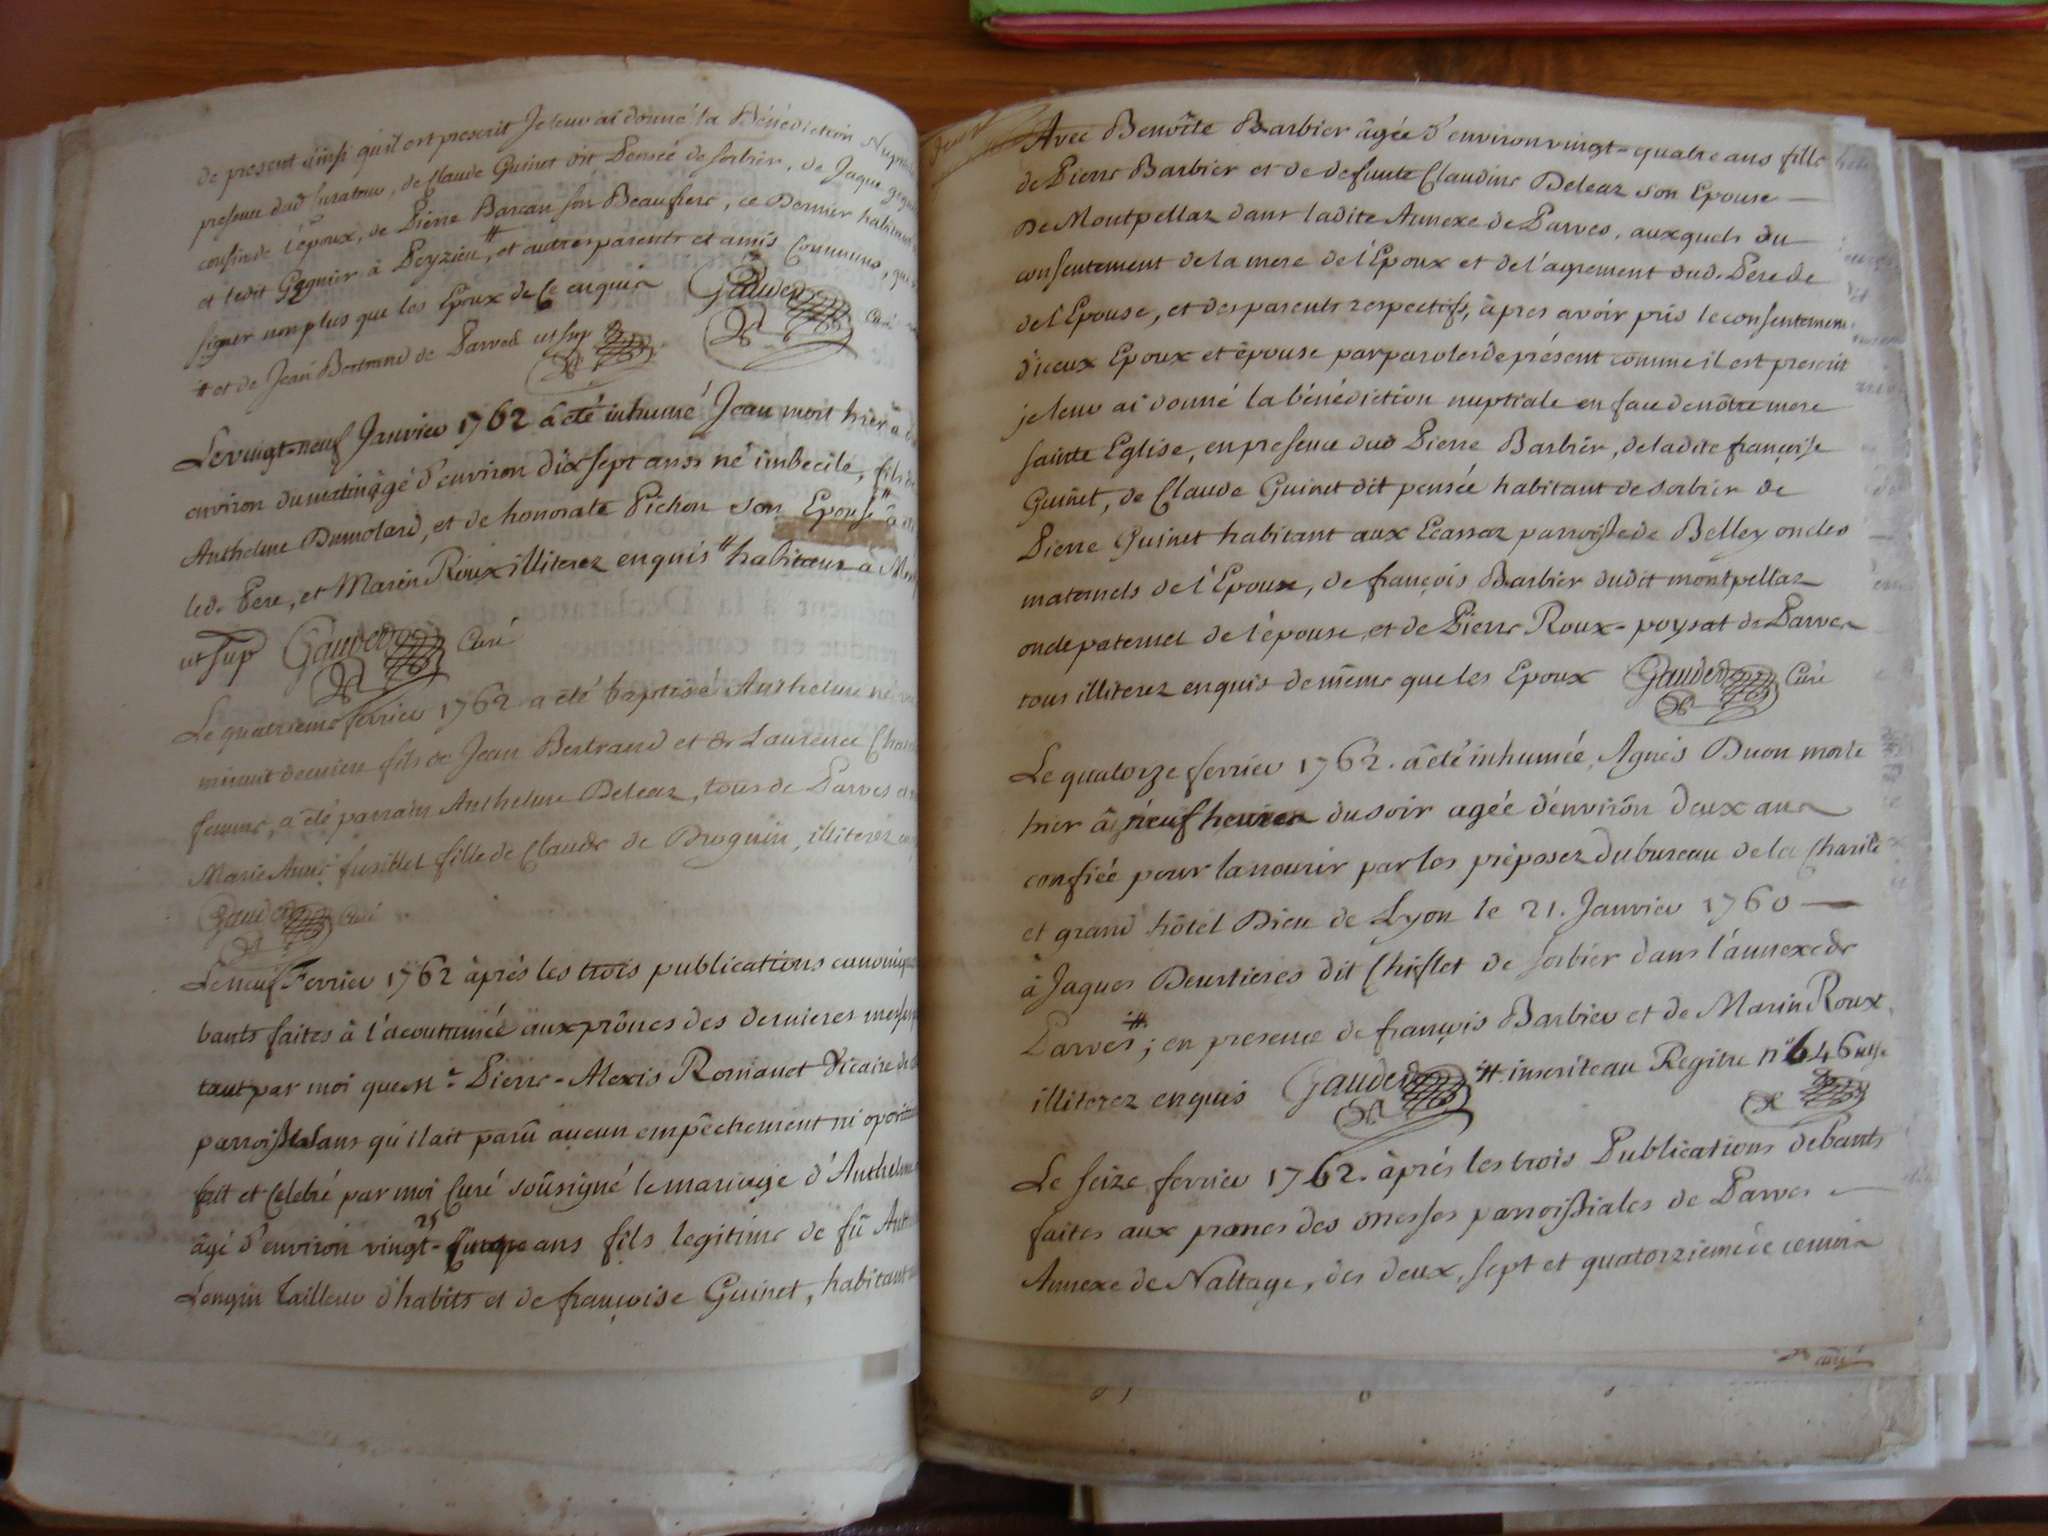 de present ainsi qu'il est prescrit Je leur ai donné la Bénédiction
presence dud Curateur, de Claude Guinet dit Pensée de sorbier, de Jaque
cousin de l'époux, de Pierre Barcan son Beaufrere, ce Dernier habitant
et ledit Gagnier à Peyzieu, # et autres parents et amis Communs,
signer non plus que les Epoux de Ce enquis Gaudet Curé
# et de Jean Bertrand de Parves ut sup
Le vingt-neuf Janvier 1762 a été inhumé Jean mort hier à
environ du matin âgé d'environ dix sept ans né imbecile, fils de
Anthelme Dumolard, et de honorate Pichon son Epouse #
led. Pere, et Marin Roux illiterez enquis # habitans a
ut sup Gaudet Curé
Le quatrieme fevrier 1762 a été baptisé Anthelme né
minuit dernier fils de Jean Bertrand et de Laurence
femme, a été parrain Anthelme Deleaz, tous de Parves et
Marie Anne fusillet fille de Claude de Druguin, illiterez
Gaudet Curé
Le neuf Fevrier 1762 àprés les trois publications
bants faites à l'acoutumée aux prônes des dernieres messes
tant par moi que Mr Pierre-Alexis Romanet Vicaire de
parroisse sans qu'il ait parû aucun empêchement ni
fait et Celebré par moi Curé soûsigné le mariage d'Anthelme
âgé d'environ vingt- 25 ans fils legitime de fû
Longin Tailleur d'habits et de françoise Guinet, habitant
Avec Benoîte Barbier âgée d'environ vingt-quatre ans fille
de Pierre Barbier et de defunte Claudine Deleaz son Epouse
De Montpellaz dans ladite Annexe de Parves, auxquels du
consentement de la mere de l'Epoux et de l'agrement dud. Pere de
de l'Epouse, et des parents respectifs, àpres avoir pris le consentement
d'iceux Epoux et épouse par paroles de présent comme il est prescrit
je leur ai donné la bénédiction nuptiale en face de nôtre mere
sainte Eglise, en presence dud Pierre Barbier, de ladite françoise
Guinet, de Claude Guinet dit pensée habitant de sorbier de
Pierre Guinet habitant aux Ecassaz parroisse de Belley oncles
maternels de l'Epoux, de françois Barbier dudit montpellaz
oncle paternel de l'épouse, et de Pierre Roux-poysat de Parves
tous illiterez enquis de même que les Epoux Gaudet Curé
Le quatorze fevrier 1762. a été inhumée, Agnès Duon morte
hier à neuf heures du soir agée d'environ deux ans
confiée pour la nourir par les préposez du bureau de la Charité
et grand hôtel Dieu de Lyon le 21. Janvier 1760
à Jaques Deurtieres dit Chiflet de sorbier dans l'annexe de
Parves #; en presence de françois Barbier et de Marin Roux
illiterez enquis Gaudet # inscrite au Regitre n° 646
Le seize fevrier 1762. àprés les trois Publications de bants
faites aux prones des messes parroissiales de Parves
Annexe de Nattage, des deux, sept et quatorzieme de ce mois